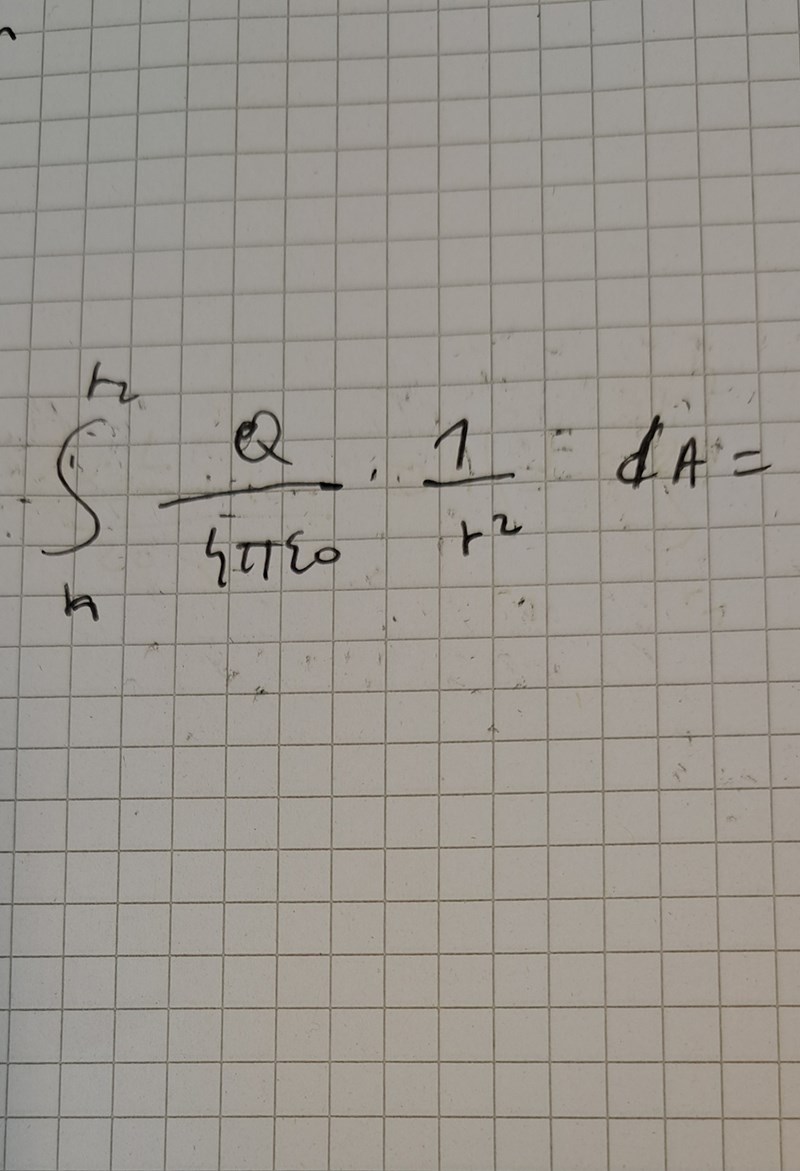 ∫_{r₁}^{r₂} Q/(4πε₀) · 1/r² dA =